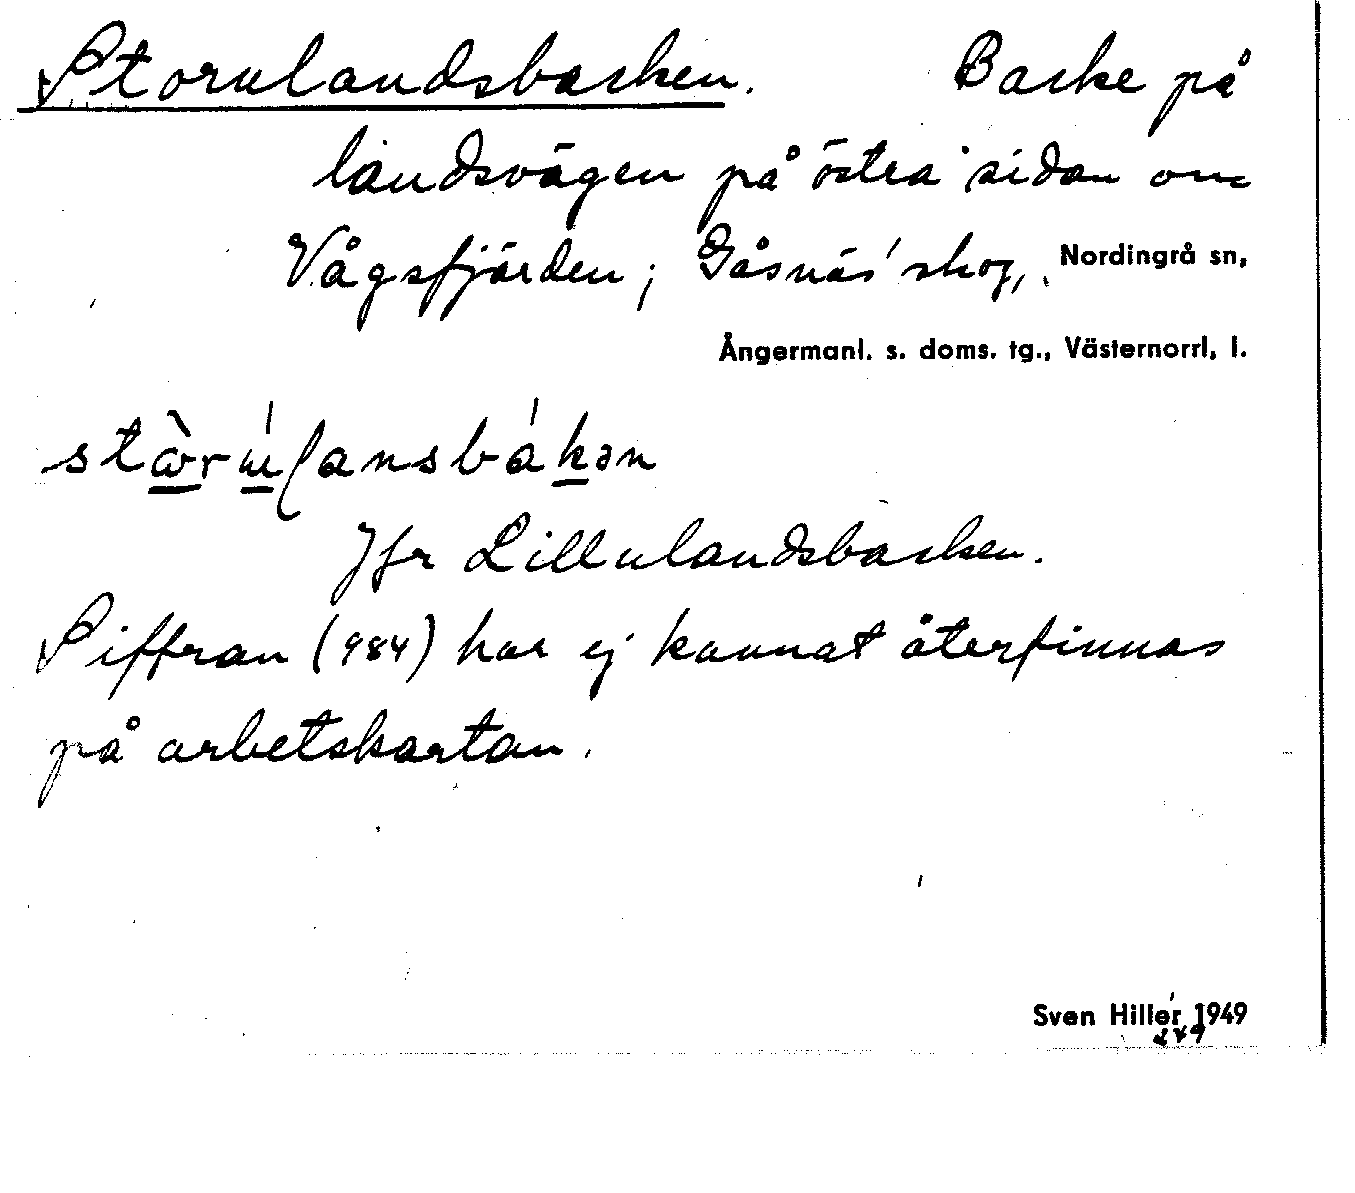 Storulandsbacken. Backe på
landsvägen på östra sidan om
Vågsfjärden; Gåsnäs' skog, Nordingrå sn,
Ångermanl. s. doms. tg., Västernorrl. l.
Jfr Lillulandsbacken.
Siffran (984) har ej kunnat återfinnas
på arbetskartan.
Sven Hillér 1949